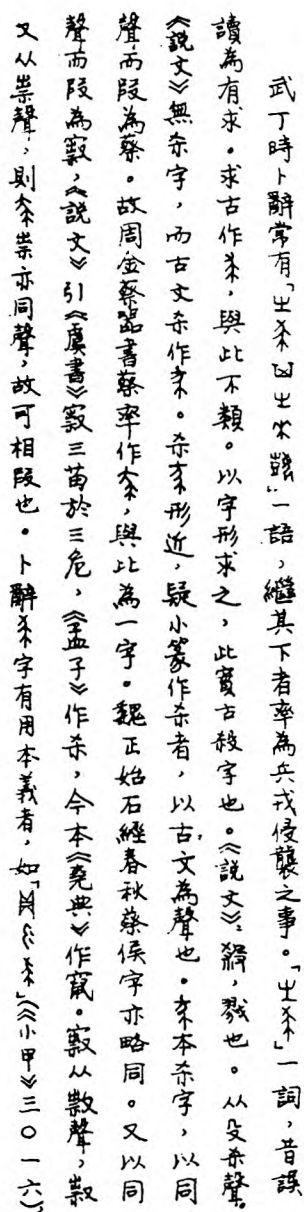 武丁時卜辭常有「㞢希囟㞢來艱」一語，繼其下者率為兵戎侵襲之事。「㞢希」一詞，昔誤
讀為有求。求古作求，與此不類。以字形求之，此實古殺字也。《說文》：殺，戮也。从殳杀聲。
《說文》無杀字，而古文杀作。杀形近，疑小篆作杀者，以古文為聲也。本杀字，以同
聲而叚為蔡。故周金蔡器書蔡率作，與此為一字。魏正始石經春秋蔡侯字亦略同。又以同
聲而叚為㝮，《說文》引《虞書》㝮三苗於三危，《孟子》作杀，今本《堯典》作竄。㝮从𣀳聲，𣀳
又从祟聲，則祟亦同聲，故可相叚也。卜辭字有用本義者，如「」（《小甲》三〇一六）